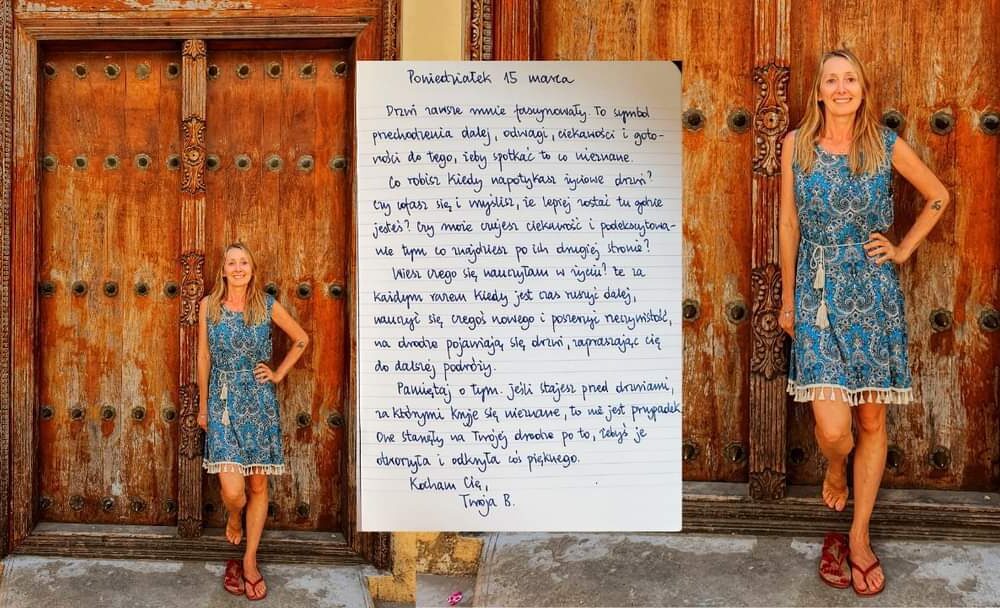 Poniedziałek 15 marca
Drzwi zawsze mnie fascynowały. To symbol
przechodzenia dalej, odwagi, ciekawości i goto-
wości do tego, żeby spotkać to co nieznane.
Co robisz kiedy napotykasz życiowe drzwi?
Czy cofasz się i myślisz, że lepiej zostać tu gdzie
jesteś? Czy może czujesz ciekawość i podekscytowa-
nie tym co znajdziesz po ich drugiej stronie?
Wiesz czego się nauczyłam w życiu? Że za
każdym razem kiedy jest czas ruszyć dalej,
nauczyć się czegoś nowego i poszerzyć rzeczywistość,
na drodze pojawiają się drzwi, zapraszając cię
do dalszej podróży.
Pamiętaj o tym. Jeśli stajesz przed drzwiami,
za którymi kryje się nieznane, to nie jest przypadek.
One stanęły na Twojej drodze po to, żebyś je
otworzyła i odkryła coś pięknego.
Kocham Cię,
Twoja B.